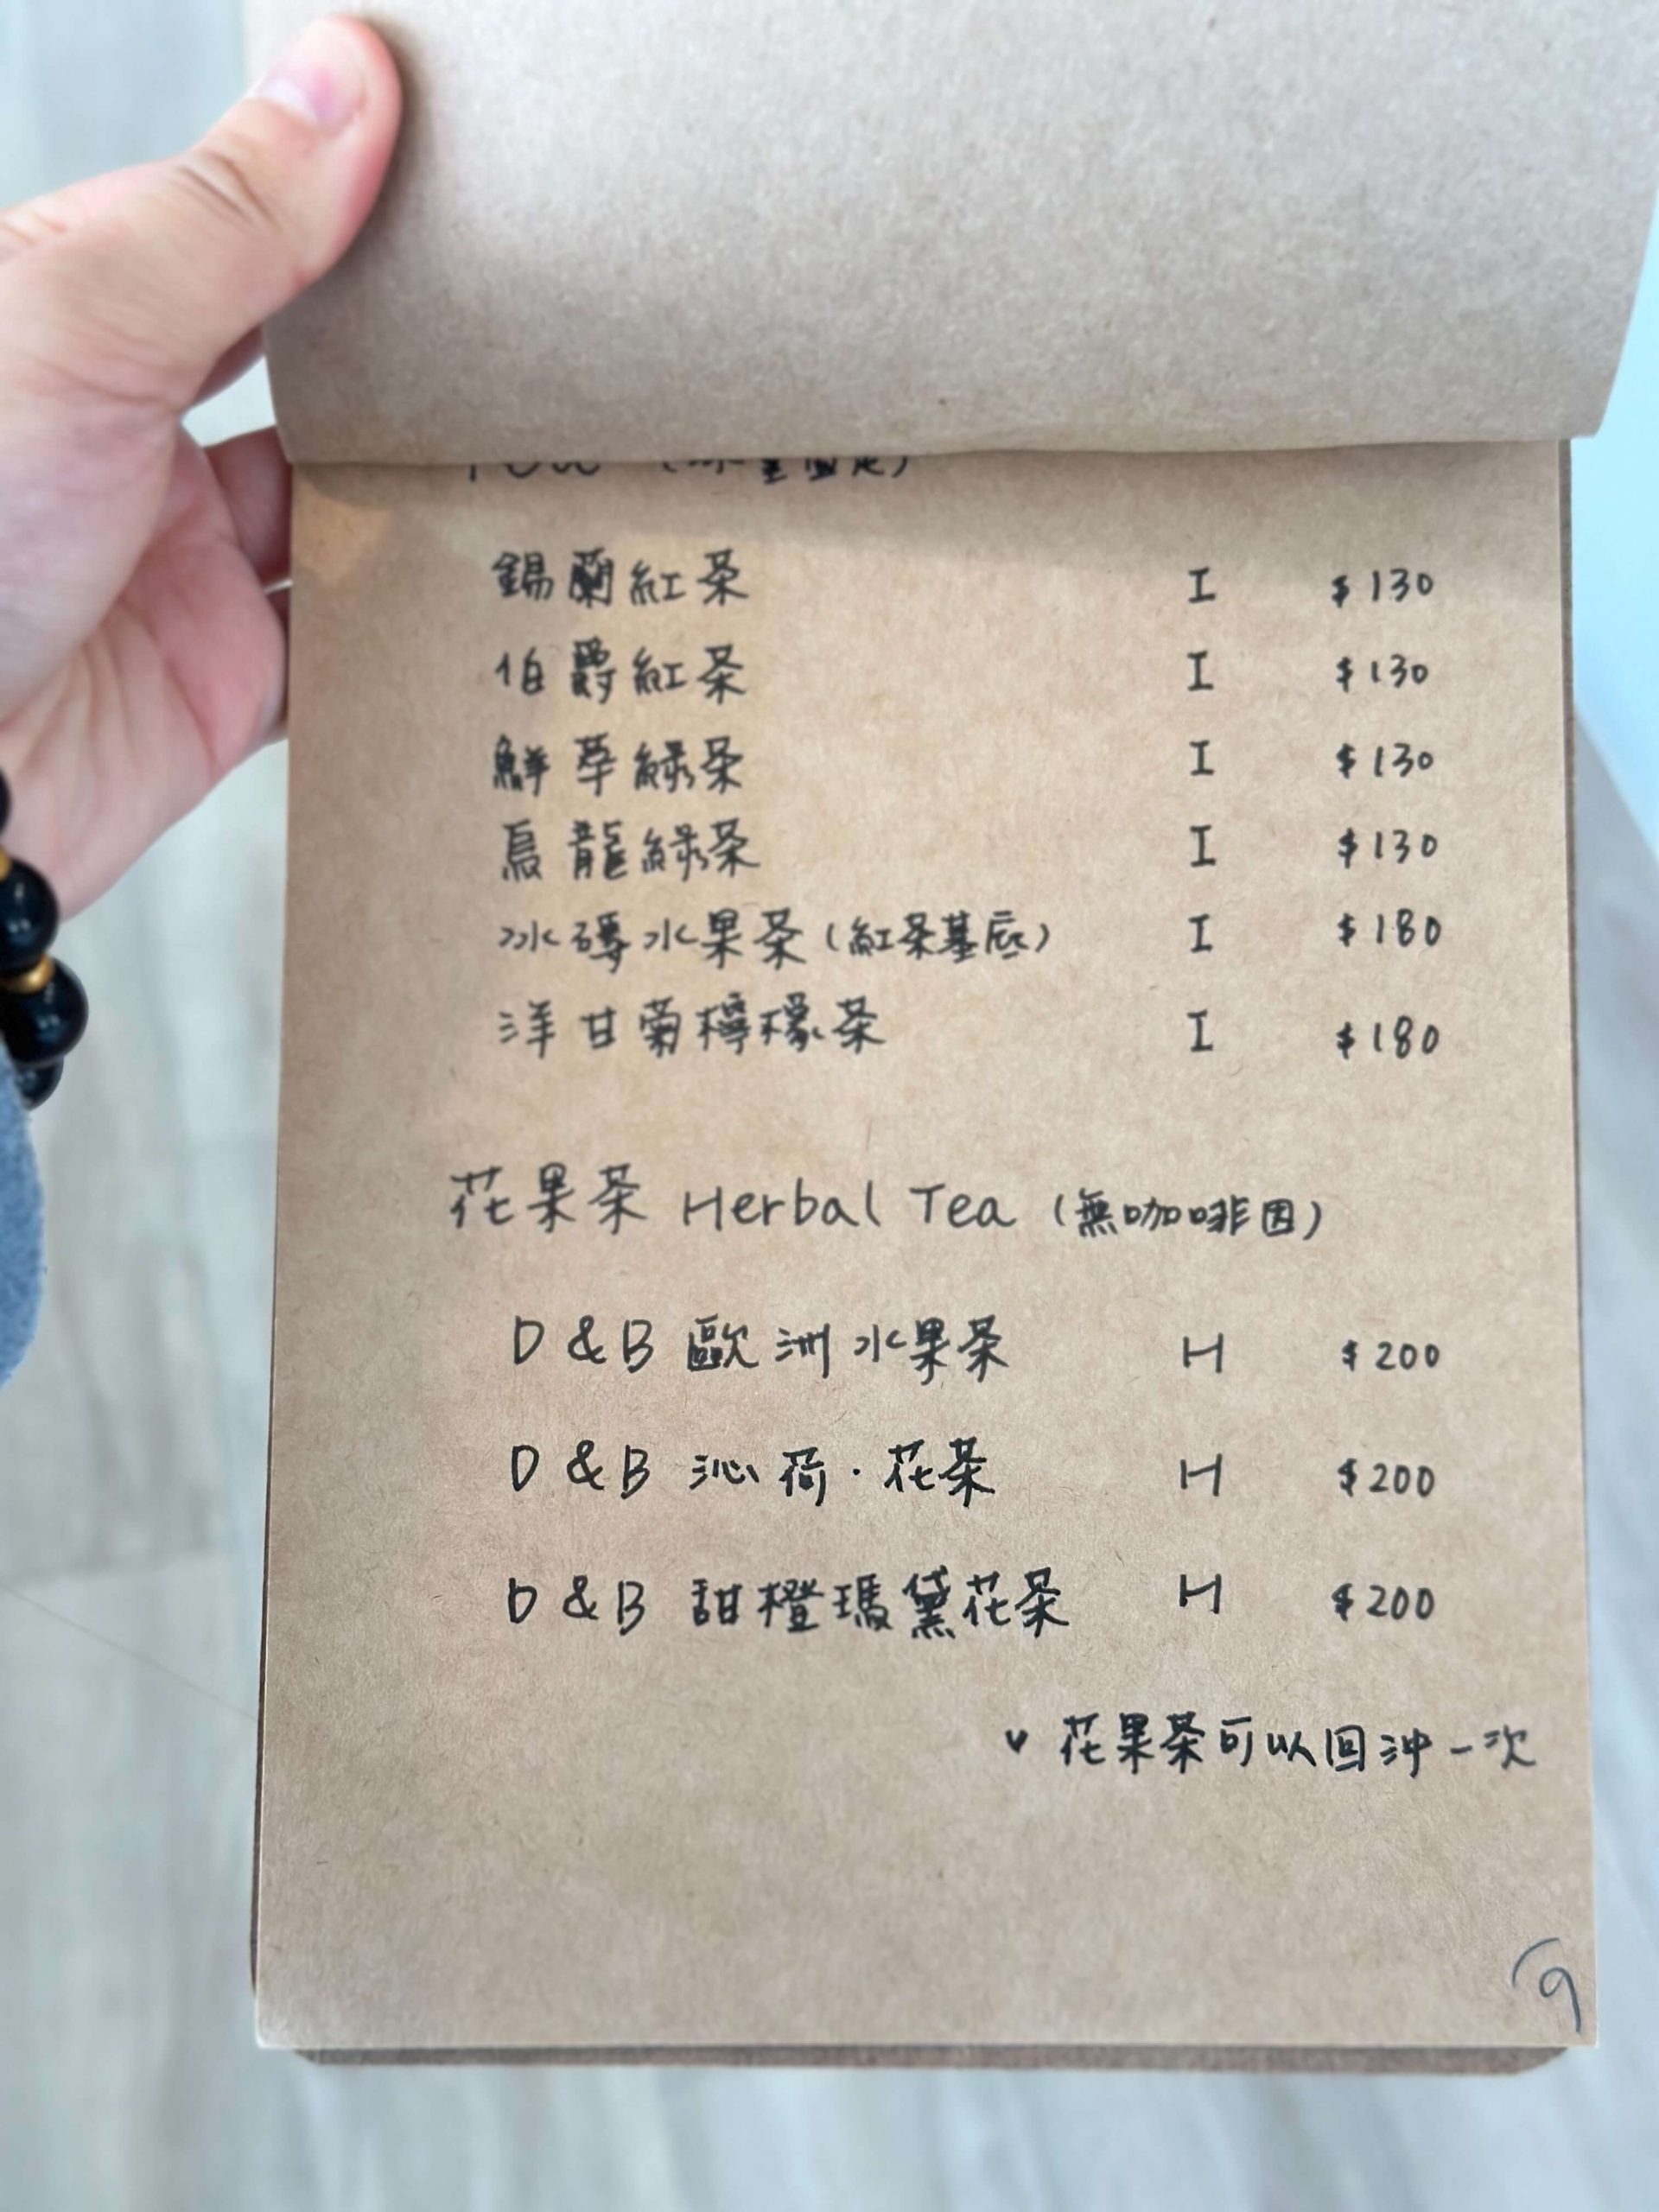 (冰量固定)
錫蘭紅茶 I $130
伯爵紅茶 I $130
鮮萃綠茶 I $130
烏龍綠茶 I $130
冰磚水果茶(紅茶基底) I $180
洋甘菊檸檬茶 I $180
花果茶 Herbal Tea (無咖啡因)
D&B 歐洲水果茶 H $200
D&B 沁荷·花茶 H $200
D&B 甜橙瑪黛花茶 H $200
v 花果茶可以回沖一次
9